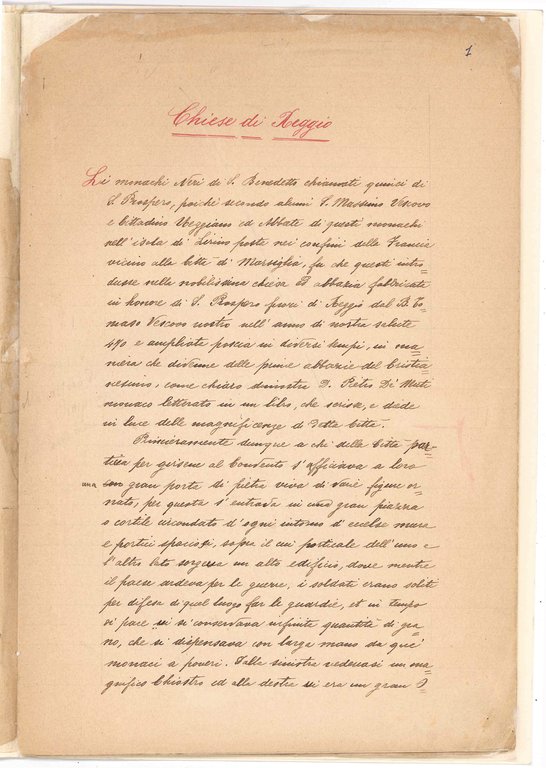 1
Chiese di Reggio
Li monachi Neri di S. Benedetto chiamati quinci di
S. Prospero, poichè secondo alcuni S. Massimo Vescovo
e Cittadino Reggiano ed Abbate di questi monachi
nell'isola di Lirino posta nei confini della Francia
vicino alla Città di Marsiglia, fu che questi intro=
dusse nella nobilissima chiesa ed abbazia fabbricata
in honore di S. Prospero fuori di Reggio dal B. To=
maso Vescovo nostro nell'anno di nostra salute
490 e ampliata poscia in diversi tempi, in ma=
niera che divenne delle prime abbazie del Cristia=
nesimo, come chiaro dimostra D. Pietro Di Mart
monaco letterato in un libro, che scrisse, e diede
in luce delle magnificenze di detta Città.
Primieramente dunque a chi della Città par=
tiva per girsene al Convento s'offeriva a loro
una gran porta di pietra viva di varie figure or=
nata, per questa s'entrava in una gran piazza
o cortile circondato d'ogni intorno d'eccelse mura
e portici spaciosi, sopra il cui porticale dell'uno e
l'altro lato sorgeva un alto edificio, dove mentre
il paese ardeva per le guerre, i soldati erano soliti
per difesa di quel luogo far le guardie, et in tempo
di pace vi si conservava infinita quantità di gra=
no, che si dispensava con larga mano da que'
monaci a poveri. Dalla sinistra vedevasi un ma=
gnifico Chiostro ed alla destra vi era un gran